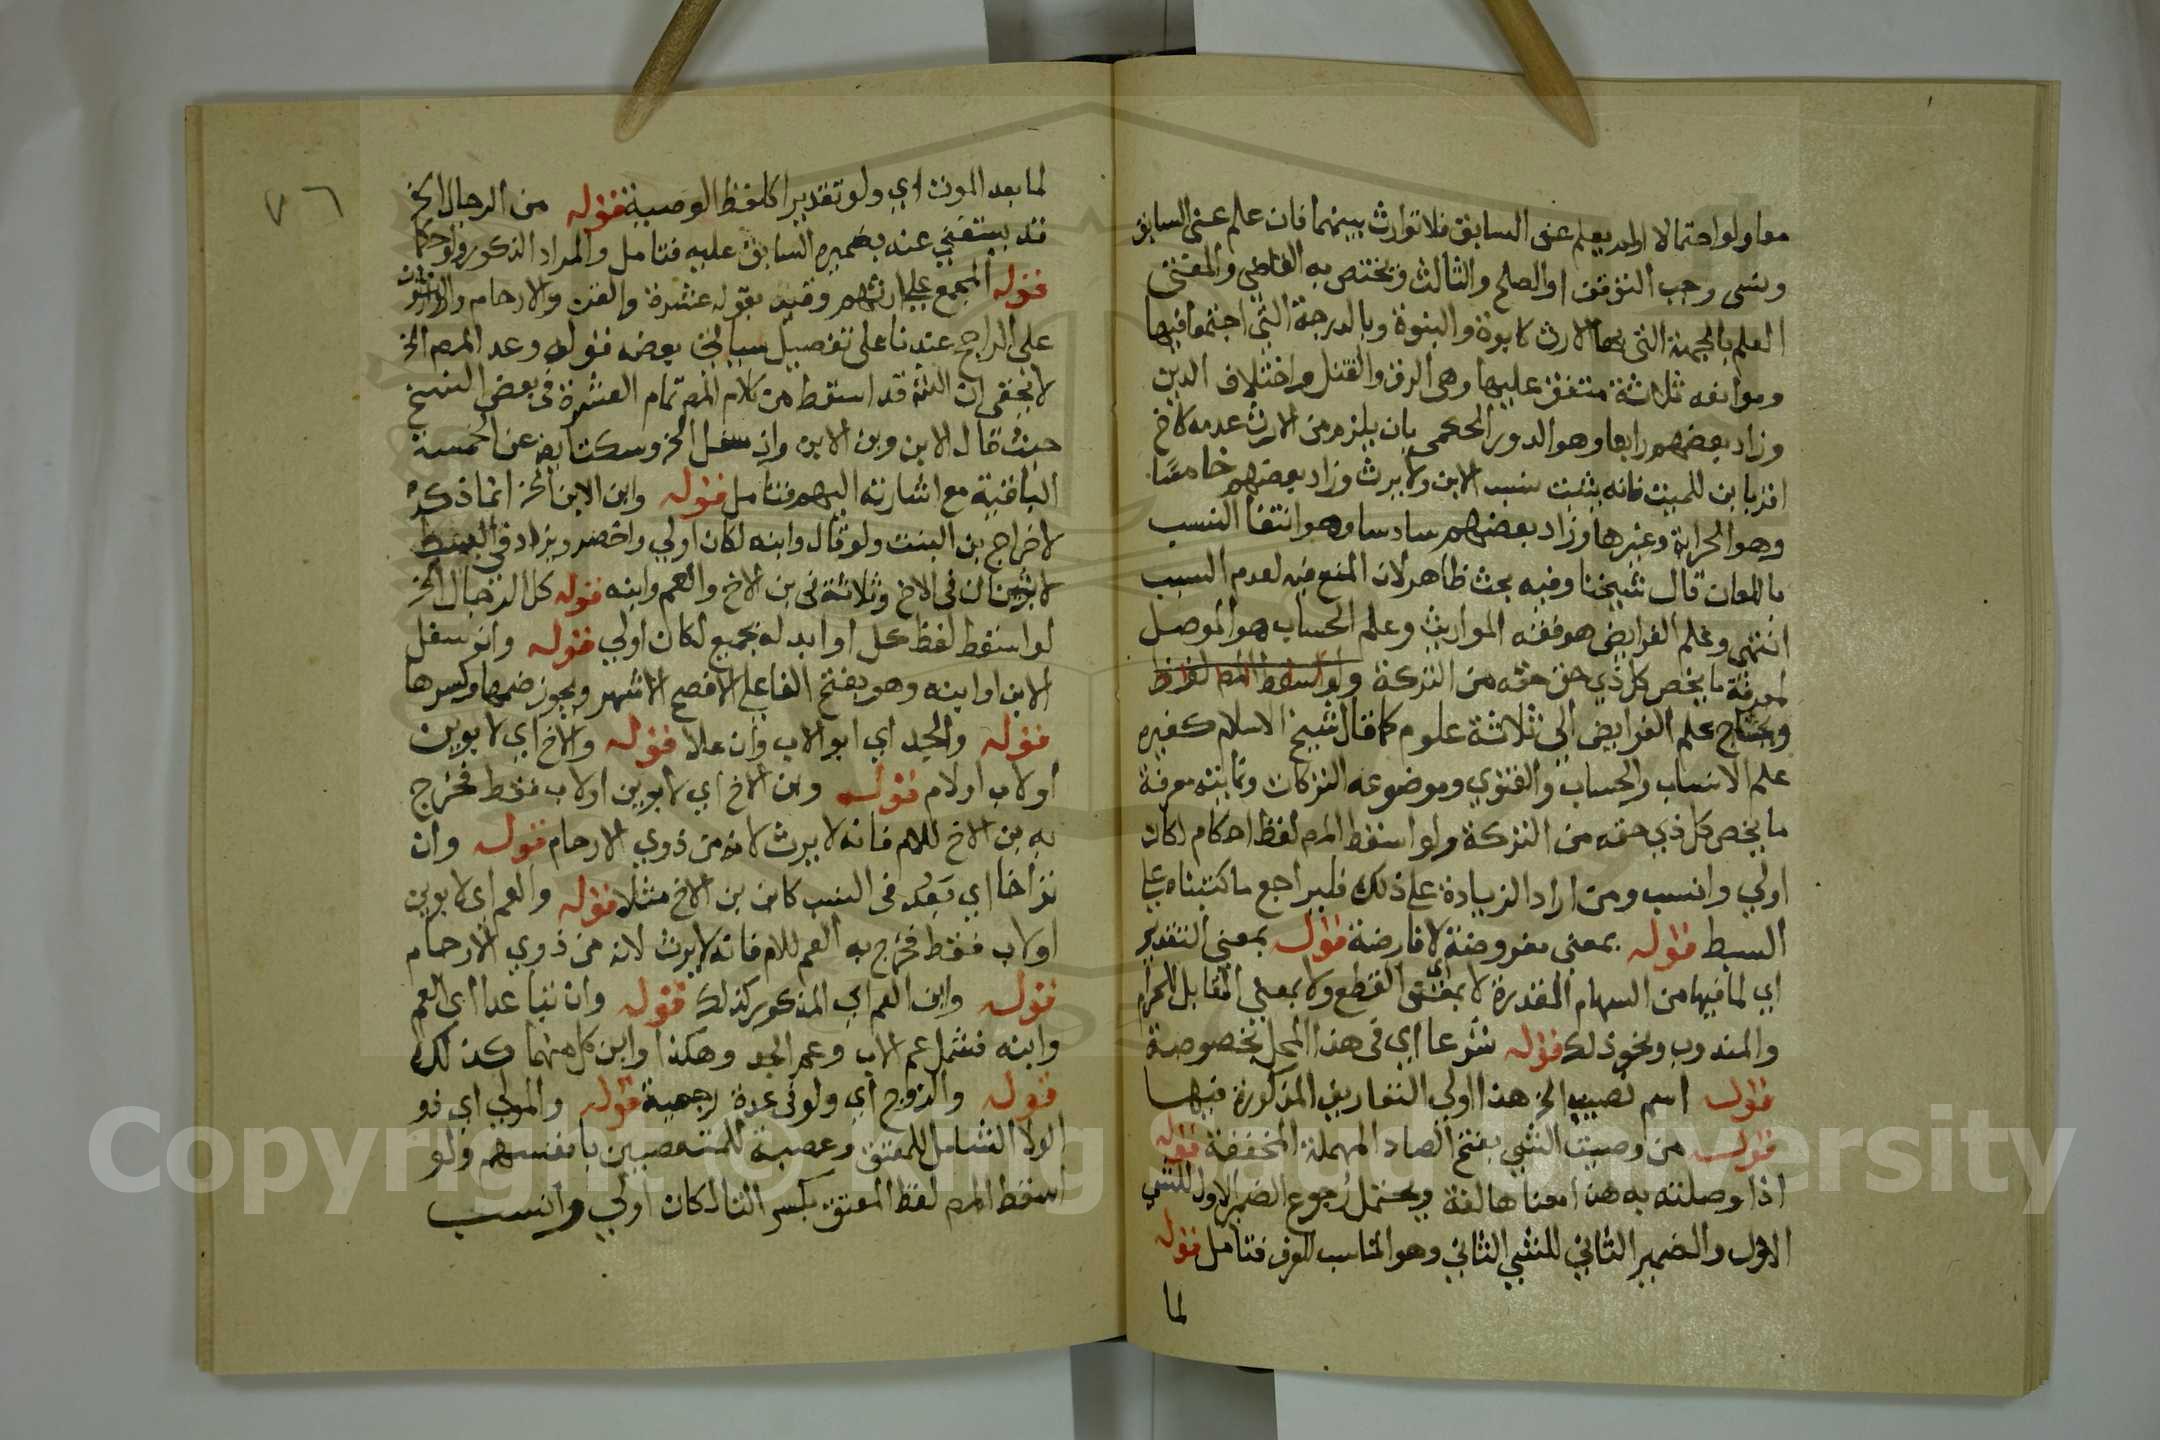 معا ولو احتمالا او لم يعلم عين السابق فلا توارث بينهما فان علم عين السابق
ونسى وجب التوقف او الصلح والثالث ويختص به القاضي والمفتي
العلم بالجهة التي بها الارث كابوة والبنوة وبالدرجة التي اجتمعا فيها
وموانعه ثلاثة متفق عليها وهى الرق والقتل واختلاف الدين
وزاد بعضهم رابعا وهو الدور الحكمى بان يلزم من الارث عدمه كاخ
اقر بابن للميت فانه يثبت نسب الابن ولا يرث وزاد بعضهم خامسا
وهو الحرابة وغيرها وزاد بعضهم سادسا وهو انتفا النسب
باللعان قال شيخنا وفيه بحث ظاهر لان المنع فيه لعدم السبب
انتهى وعلم الفرايض هو فقه المواريث وعلم الحساب هو الموصل
لمعرفة ما يخص كل ذي حق حقه من التركة ولو اسقط المص لفظ
ويحتاج علم الفرايض الى ثلاثة علوم كما قال شيخ الاسلام كغيره
علم الانساب والحساب والفتوي وموضوعه التركات وغايته معرفة
ما يخص كل ذي حقه من التركة ولو اسقط المص لفظ احكام لكان
اولي وانسب ومن اراد الزيادة على ذلك فليراجع ما كتبناه على
السبط قوله بمعنى مفروضة لا فارضة قوله بمعنى التقدير
اي لما فيها من السهام المقدرة لا بمعنى القطع ولا بمعنى المقابل للحرام
والمندوب ونحو ذلك قوله شرعا اي في هذا المحل بخصوصه
قوله اسم نصيب الخ هذا اولى التعاريف المذكورة فيها
قوله من وصيت الشي بفتح الصاد المهملة المخففة قوله
اذا وصلته به هذا معناها لغة ويحتمل رجوع الضمير الاول للشي
الاول والضمير الثاني للشي الثاني وهو المناسب للعرف فتامل قوله
لما
٧٦
لما بعد الموت اي ولو تقديرا كلفظ الوصية قوله من الرجال الخ
قد يستغني عنه بضميره السابق عليه فتامل والمراد الذكور ولو حكما
قوله المجمع على ارثهم وقيد بقوله عشرة والقن والارحام والوارثون
على الراجح عندنا على تفصيل سياتي بعضه قوله وعد المص الخ
لا يخفى ان الش قد اسقط من كلام المص تمام العشرة في بعض النسخ
حيث قال الابن وبن الابن وان سفل الخ وسكت ايضا عن الخمسة
الباقية مع اشارته اليهم فتامل قوله وابن الابن الخ انما ذكره
لاخراج بن البنت ولو قال وابنه لكان اولي واخصر ويزاد في البسط
لا ثنان في الاخ وثلاثة في بن الاخ والعم وابنه قوله كل الرجال الخ
لو اسقط لفظ كل او ابدله بجميع لكان اولي قوله وان سفل
الابن او ابنه وهو بفتح الفا على الافصح الاشهر ويجوز ضمها وكسرها
قوله والجد اي ابو الاب وان علا قوله والاخ اي لابوين
او لاب او لام قوله وبن الاخ اي لابوين او لاب فقط فخرج
به بن الاخ للام فانه لا يرث لانه من ذوي الارحام قوله وان
تراخا اي بَعُد في النسب كابن بن الاخ مثلا قوله والعم اي لابوين
او لاب فقط فخرج به العم للام فانه لا يرث لانه من ذوي الارحام
قوله وابن العم اي المذكور كذلك قوله وان تباعدا اي العم
وابنه فشمل عم الاب وعم الجد وهكذا وابن كل منهما كذلك
قوله والزوج اي ولو في عدة رجعية قوله والمولي اي ذو
الولا الشامل للمعتق وعصبة للمتعصبين بانفسهم ولو
اسقط المص لفظ المعتق بكسر التا لكان اولي وانسب